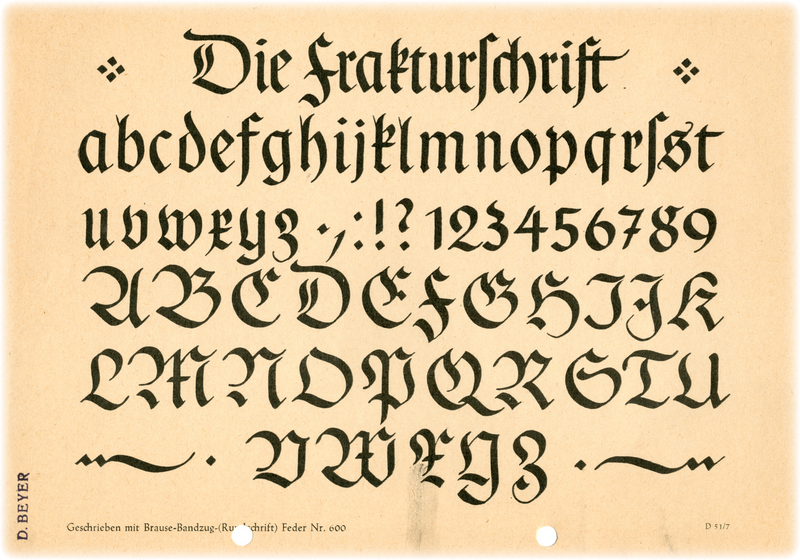 Die Frakturſchrift
abcdefghijklmnopqrſst
uvwxyz·,:!? 123456789
ABCDEFGHIJK
LMNOPQRSTU
VWXYZ
Geschrieben mit Brause-Bandzug-(Rundschrift) Feder Nr. 600
D 51/7
D. BEYER